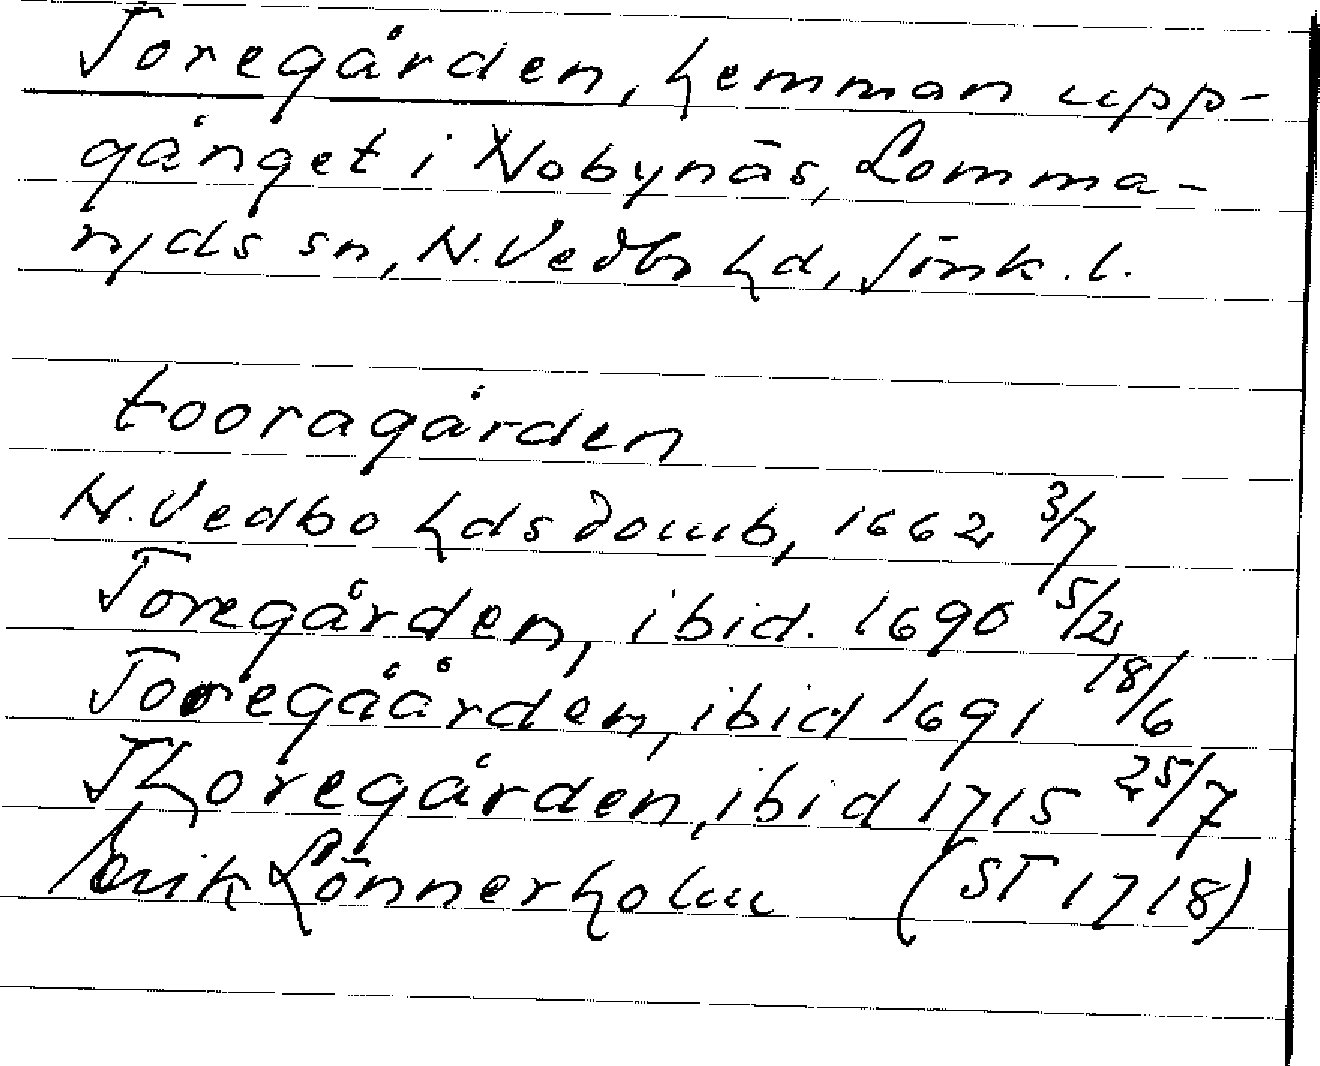 Toregården, hemman upp-
gånget i Nobynäs, Lomma-
ryds sn, N. Vedbo hd, Jönk. l.
tooragården
N. Vedbo hds domb, 1662 3/7
Toregården, ibid. 1690 5/2
Toregåården, ibid 1691 18/6
Thoregården, ibid 1715 25/7
Erik Lönnerholm (ST 1718)